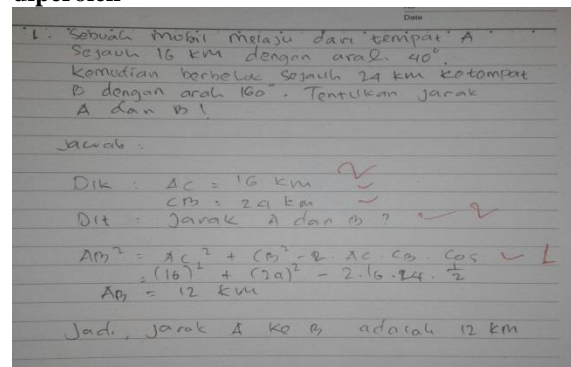 diperoleh
Date
1. Sebuah mobil melaju dari tempat A
Sejauh 16 km dengan arah 40°.
Kemudian berbelok sejauh 24 km ketempat
B dengan arah 160°. Tentukan jarak
A dan B!
Jawab :
Dik : AC = 16 km
CB = 24 km
Dit : Jarak A dan B ?
2
2
AB² = AC² + CB² - 2. AC. CB. Cos
1
= (16)² + (24)² - 2.16.24. 1/2
AB = 12 km
Jadi, jarak A ke B adalah 12 km